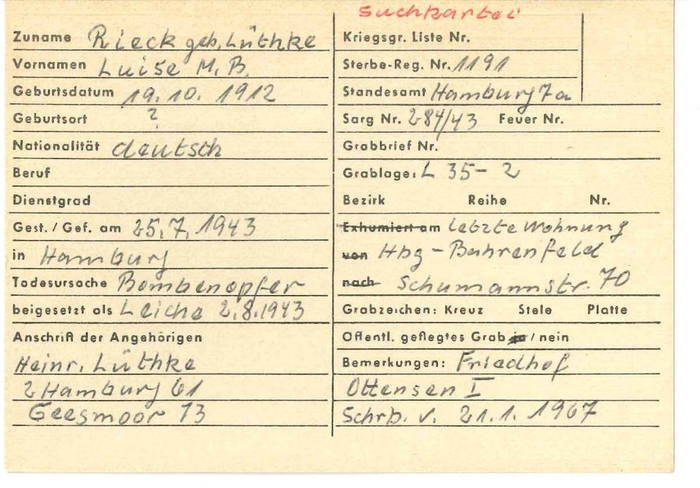 Suchkartei
Zuname Rieck geb. Lüthke
Vornamen Luise M. B.
Geburtsdatum 19.10. 1912
Geburtsort ?
Nationalität deutsch
Beruf
Dienstgrad
Gest. / Gef. am 25.7.1943
in Hamburg
Todesursache Bombenopfer
beigesetzt als Leiche 2.8.1943
Anschrift der Angehörigen
Heinr. Lüthke
2 Hamburg 61
Geesmoor 13
Kriegsgr. Liste Nr.
Sterbe-Reg. Nr. 1191
Standesamt Hamburg 7a
Sarg Nr. 284/43 Feuer Nr.
Grabbrief Nr.
Grablage: L 35-2
Bezirk Reihe Nr.
Exhumiert am letzte Wohnung
von Hbg-Bahrenfeld
nach Schumannstr. 70
Grabzeichen: Kreuz Stele Platte
Öffentl. gepflegtes Grab ja / nein
Bemerkungen: Friedhof
Ottensen I
Schrb. v. 21.1.1967